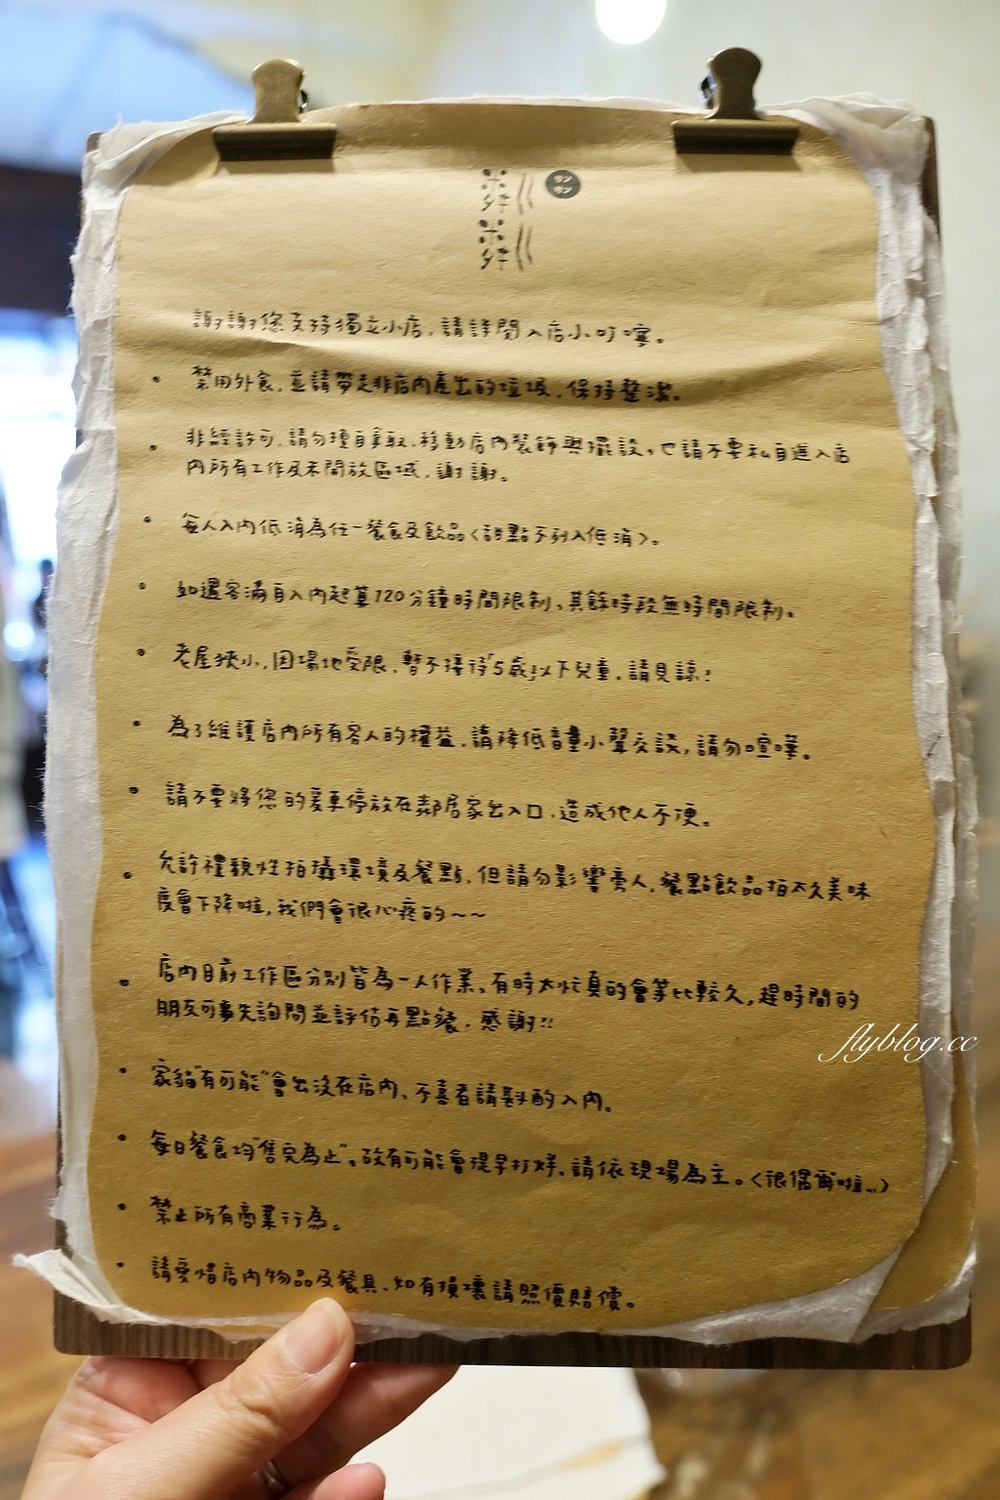 謝謝您支持獨立小店，請詳閱入店小叮嚀。
• 禁用外食，並請帶走非店內產出的垃圾，保持整潔。
• 非經許可，請勿擅自拿取、移動店內裝飾與擺設。也請不要私自進入店
內所有工作及未開放區域，謝謝。
• 每人入內低消為任一餐食及飲品〈甜點不列入低消〉。
• 如遇客滿自入內起算120分鐘時間限制、其餘時段無時間限制。
• 老屋狹小，因場地受限，暫不接待「5歲」以下兒童，請見諒！
• 為了維護店內所有客人的權益，請降低音量小聲交談，請勿喧嘩。
• 請不要將您的愛車停放在鄰居家出入口，造成他人不便。
• 允許禮貌性拍攝環境及餐點，但請勿影響旁人，餐點飲品拍太久美味
度會下降啦，我們會很心疼的~~
• 店內目前工作區分別皆為一人作業、有時太忙真的會等比較久，趕時間的
朋友可事先詢問並評估再點餐，感謝!!
• 家貓"有可能"會出沒在店內、不喜者請斟酌入內。
• 每日餐食均"售完為止"。故有可能會提早打烊、請依現場為主。〈很偶爾啦...〉
• 禁止所有商業行為。
• 請愛惜店內物品及餐具、如有損壞請照價賠償。
flyblog.cc